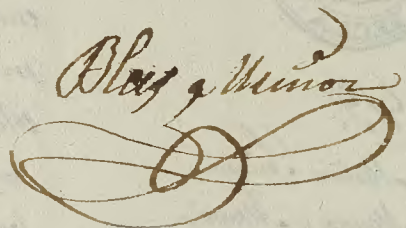 Blas g Munoz